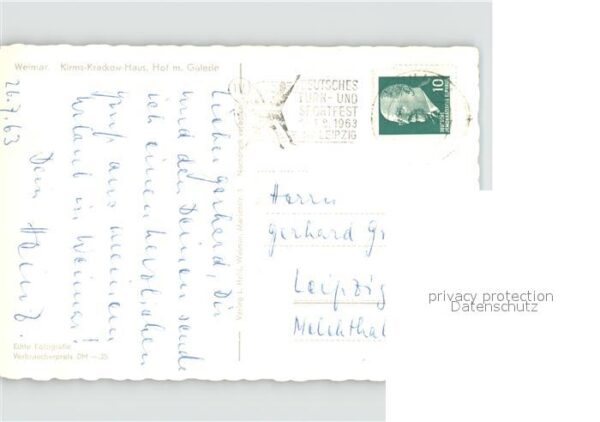 Weimar. Kirms-Krackow-Haus, Hof m. Galerie
26.7.63
Lieber Gerhard, Dir
und den Deinen sende
ich einen herzlichen
Gruß aus meinem
Urlaub in Weimar!
Dein Heinz.
Echte Fotografie
Verbraucherpreis DM —,25
Verlag
Weimar
DEUTSCHES
TURN- UND
SPORTFEST
8.1963
LEIPZIG
10
Herrn
Gerhard Gr
Leipzig
Melchthal
privacy protection
Datenschutz